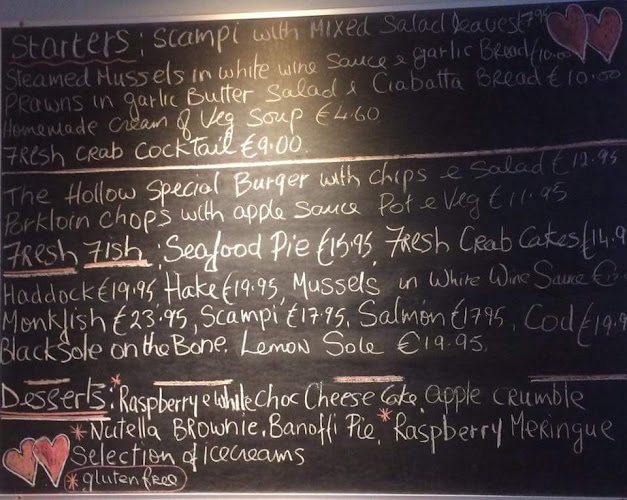 Starters: Scampi with Mixed Salad leaves €7.95
Steamed Mussels in white wine Sauce & garlic Bread €10.00
Prawns in garlic Butter Salad & Ciabatta Bread €10.00
Homemade Cream of Veg Soup €4.60
Fresh Crab Cocktail €9.00
The Hollow Special Burger with chips & Salad €12.95
Porkloin Chops with apple Sauce Pot & Veg €11.95
Fresh Fish: Seafood Pie €15.95, Fresh Crab Cakes €14.9
Haddock €19.95, Hake €19.95, Mussels in White Wine Sauce
Monkfish €23.95, Scampi €17.95, Salmon €17.95, Cod €19.9
Black Sole on the Bone. Lemon Sole €19.95.
Desserts: *Raspberry & White Choc Cheese Cake, apple crumble
*Nutella Brownie. Banoffi Pie, *Raspberry Meringue
Selection of icecreams
*gluten free